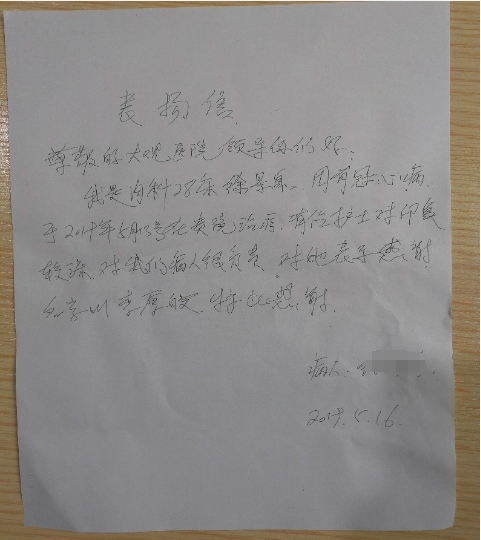 表扬信
尊敬的大观医院领导你们好.
我是内科28床徐景。因有冠心病
于2017年5月13号在贵院治疗.有位护士对印象
较深.对我们病人很负责.对她表示感谢
名字叫李厚.特此感谢.
病人:
2017.5.16.